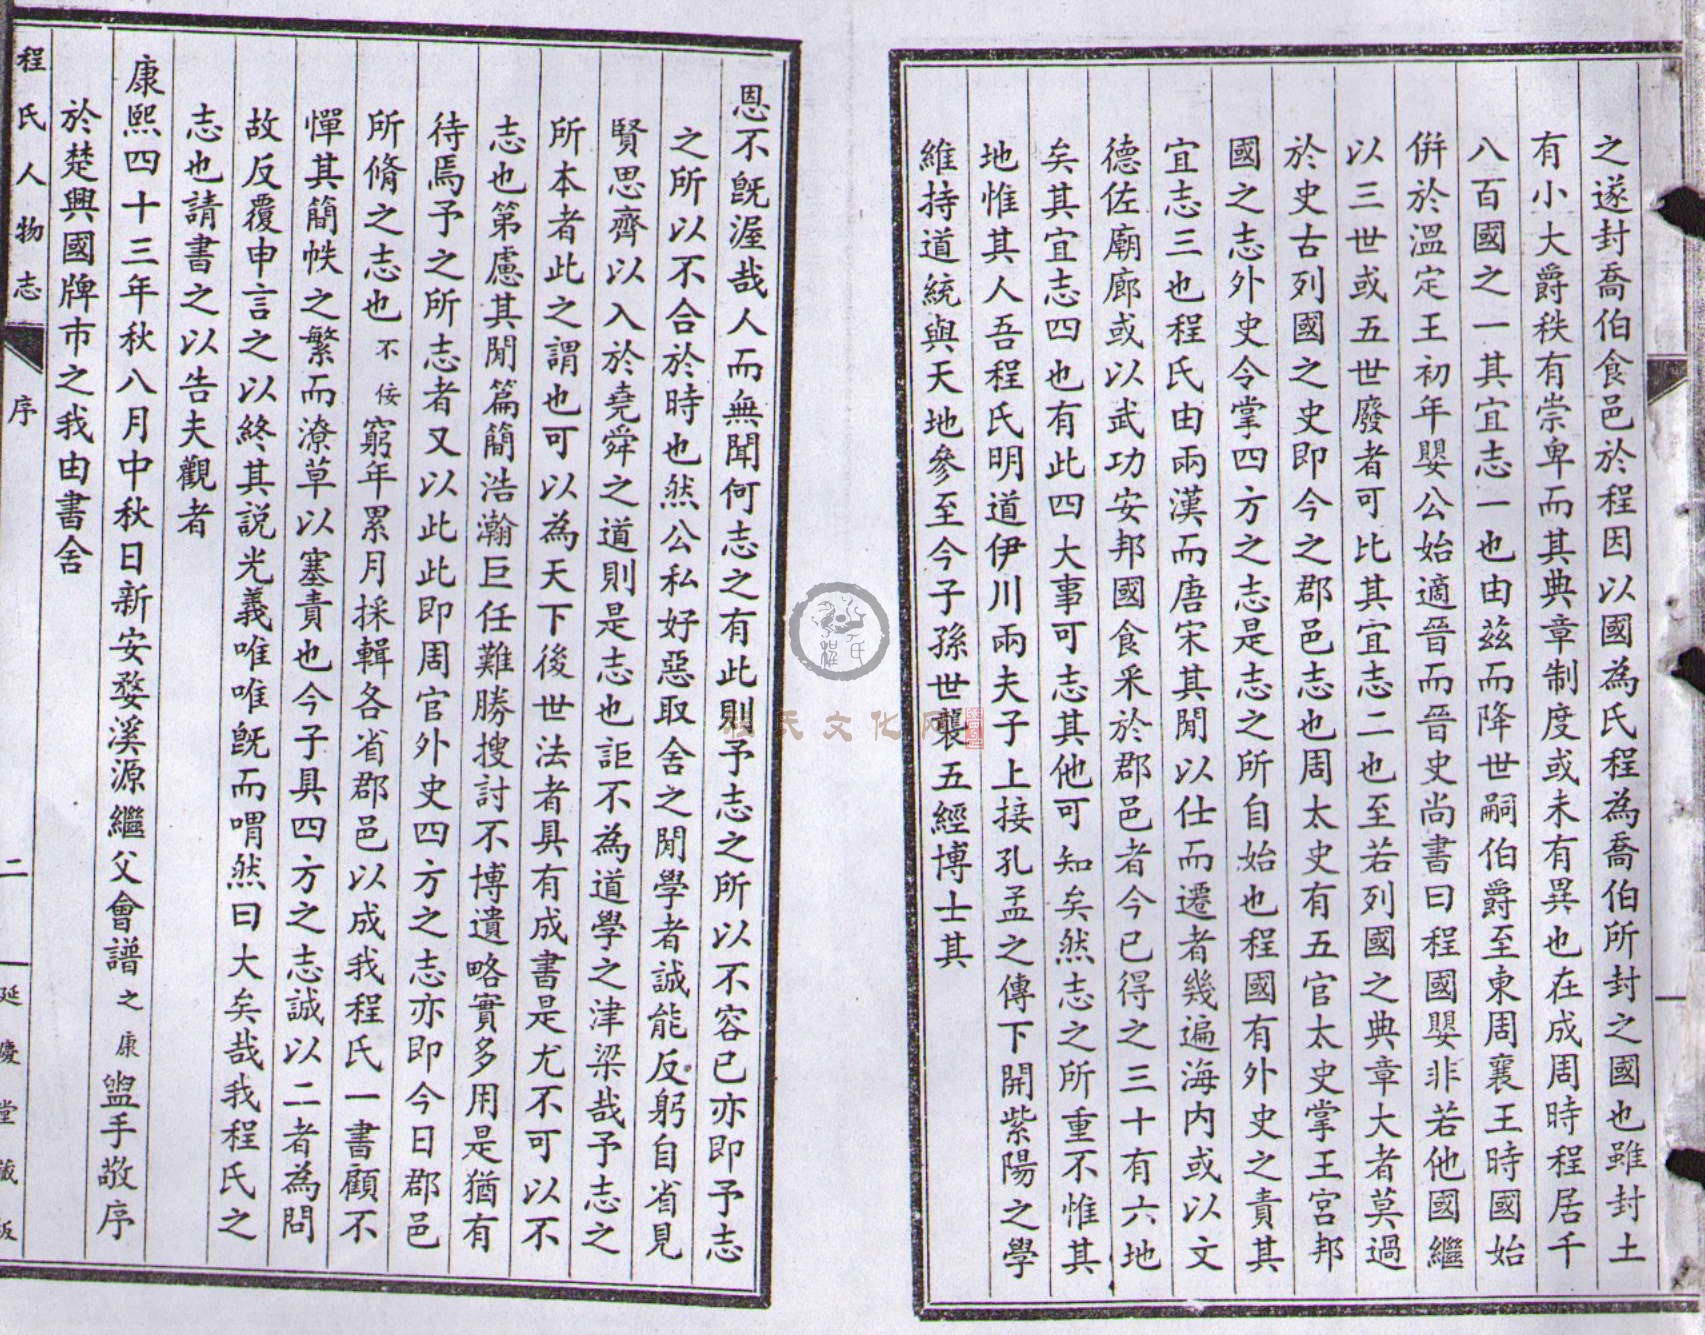 之遂封喬伯食邑於程因以國為氏程為喬伯所封之國也雖封土
有小大爵秩有崇卑而其典章制度或未有異也在成周時程居千
八百國之一其宜志一也由茲而降世嗣伯爵至東周襄王時國始
併於溫定王初年嬰公始適晉而晉史尚書曰程國嬰非若他國繼
以三世或五世廢者可比其宜志二也至若列國之典章大者莫過
於史古列國之史即今之郡邑志也周太史有五官太史掌王宮邦
國之志外史令掌四方之志是志之所自始也程國有外史之責其
宜志三也程氏由兩漢而唐宋其閒以仕而遷者幾遍海内或以文
德佐廟廊或以武功安邦國食采於郡邑者今已得之三十有六地
矣其宜志四也有此四大事可志其他可知矣然志之所重不惟其
地惟其人吾程氏明道伊川兩夫子上接孔孟之傳下開紫陽之學
維持道統與天地參至今子孫世襲五經博士其
恩不既渥哉人而無聞何志之有此則予志之所以不容已亦即予志
之所以不合於時也然公私好惡取舍之閒學者誠能反躬自省見
賢思齊以入於堯舜之道則是志也詎不為道學之津梁哉予志之
所本者此之謂也可以為天下後世法者具有成書是尤不可以不
志也第慮其閒篇簡浩瀚巨任難勝搜討不博遺略實多用是猶有
待焉予之所志者又以此此即周官外史四方之志亦即今日郡邑
所脩之志也不佞窮年累月採輯各省郡邑以成我程氏一書顧不
憚其簡帙之繁而潦草以塞責也今子具四方之志誠以二者為問
故反覆申言之以終其說光義唯唯既而喟然曰大矣哉我程氏之
志也請書之以告夫觀者
康熙四十三年秋八月中秋日新安婺溪源繼父會譜之康盥手敬序
於楚興國牌市之我由書舍
程氏人物志
序
二
延慶堂藏板
程氏文化网